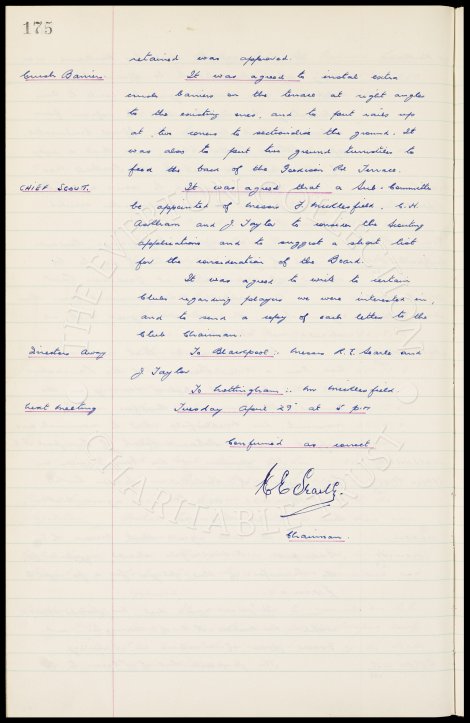 175
retained was approved.
Crush Barriers. It was agreed to instal extra
crush barriers on the terrace at right angles
to the existing ones, and to put rails up
at two corners to sectionalise the ground. It
was also to put two ground turnstiles to
feed the back of the Goodison Rd Terrace.
CHIEF SCOUT. It was agreed that a Sub-Committee
be appointed of Messrs F Micklesfield, C.H.
Askham and J Taylor to consider the scouting
applications and to suggest a short list
for the consideration of the Board.
It was agreed to write to certain
Clubs regarding players we were interested in,
and to send a copy of each letter to the
Club Chairman.
Directors Away To Blackpool:. Messrs R.E. Searle and
J Taylor
To Nottingham:. Mr Micklesfield.
Next Meeting Tuesday April 29th at 5 p.m
Confirmed as correct
Searle.
Chairman.
THE EVERTON
CHARITABLE TRUST